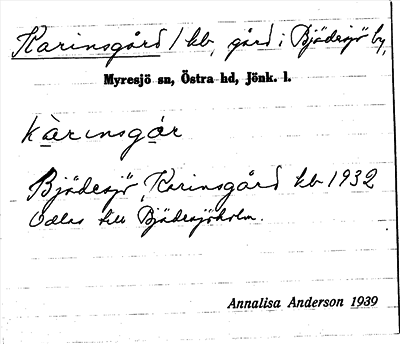 Karinsgård / kb, gård i Bjädesjö by,
Myresjö sn, Östra hd, Jönk. l.
kàrinsgɑ̊r
Bjädesjö, Karinsgård kb 1932
Odlas till Bjädesjöholm.
Annalisa Anderson 1939